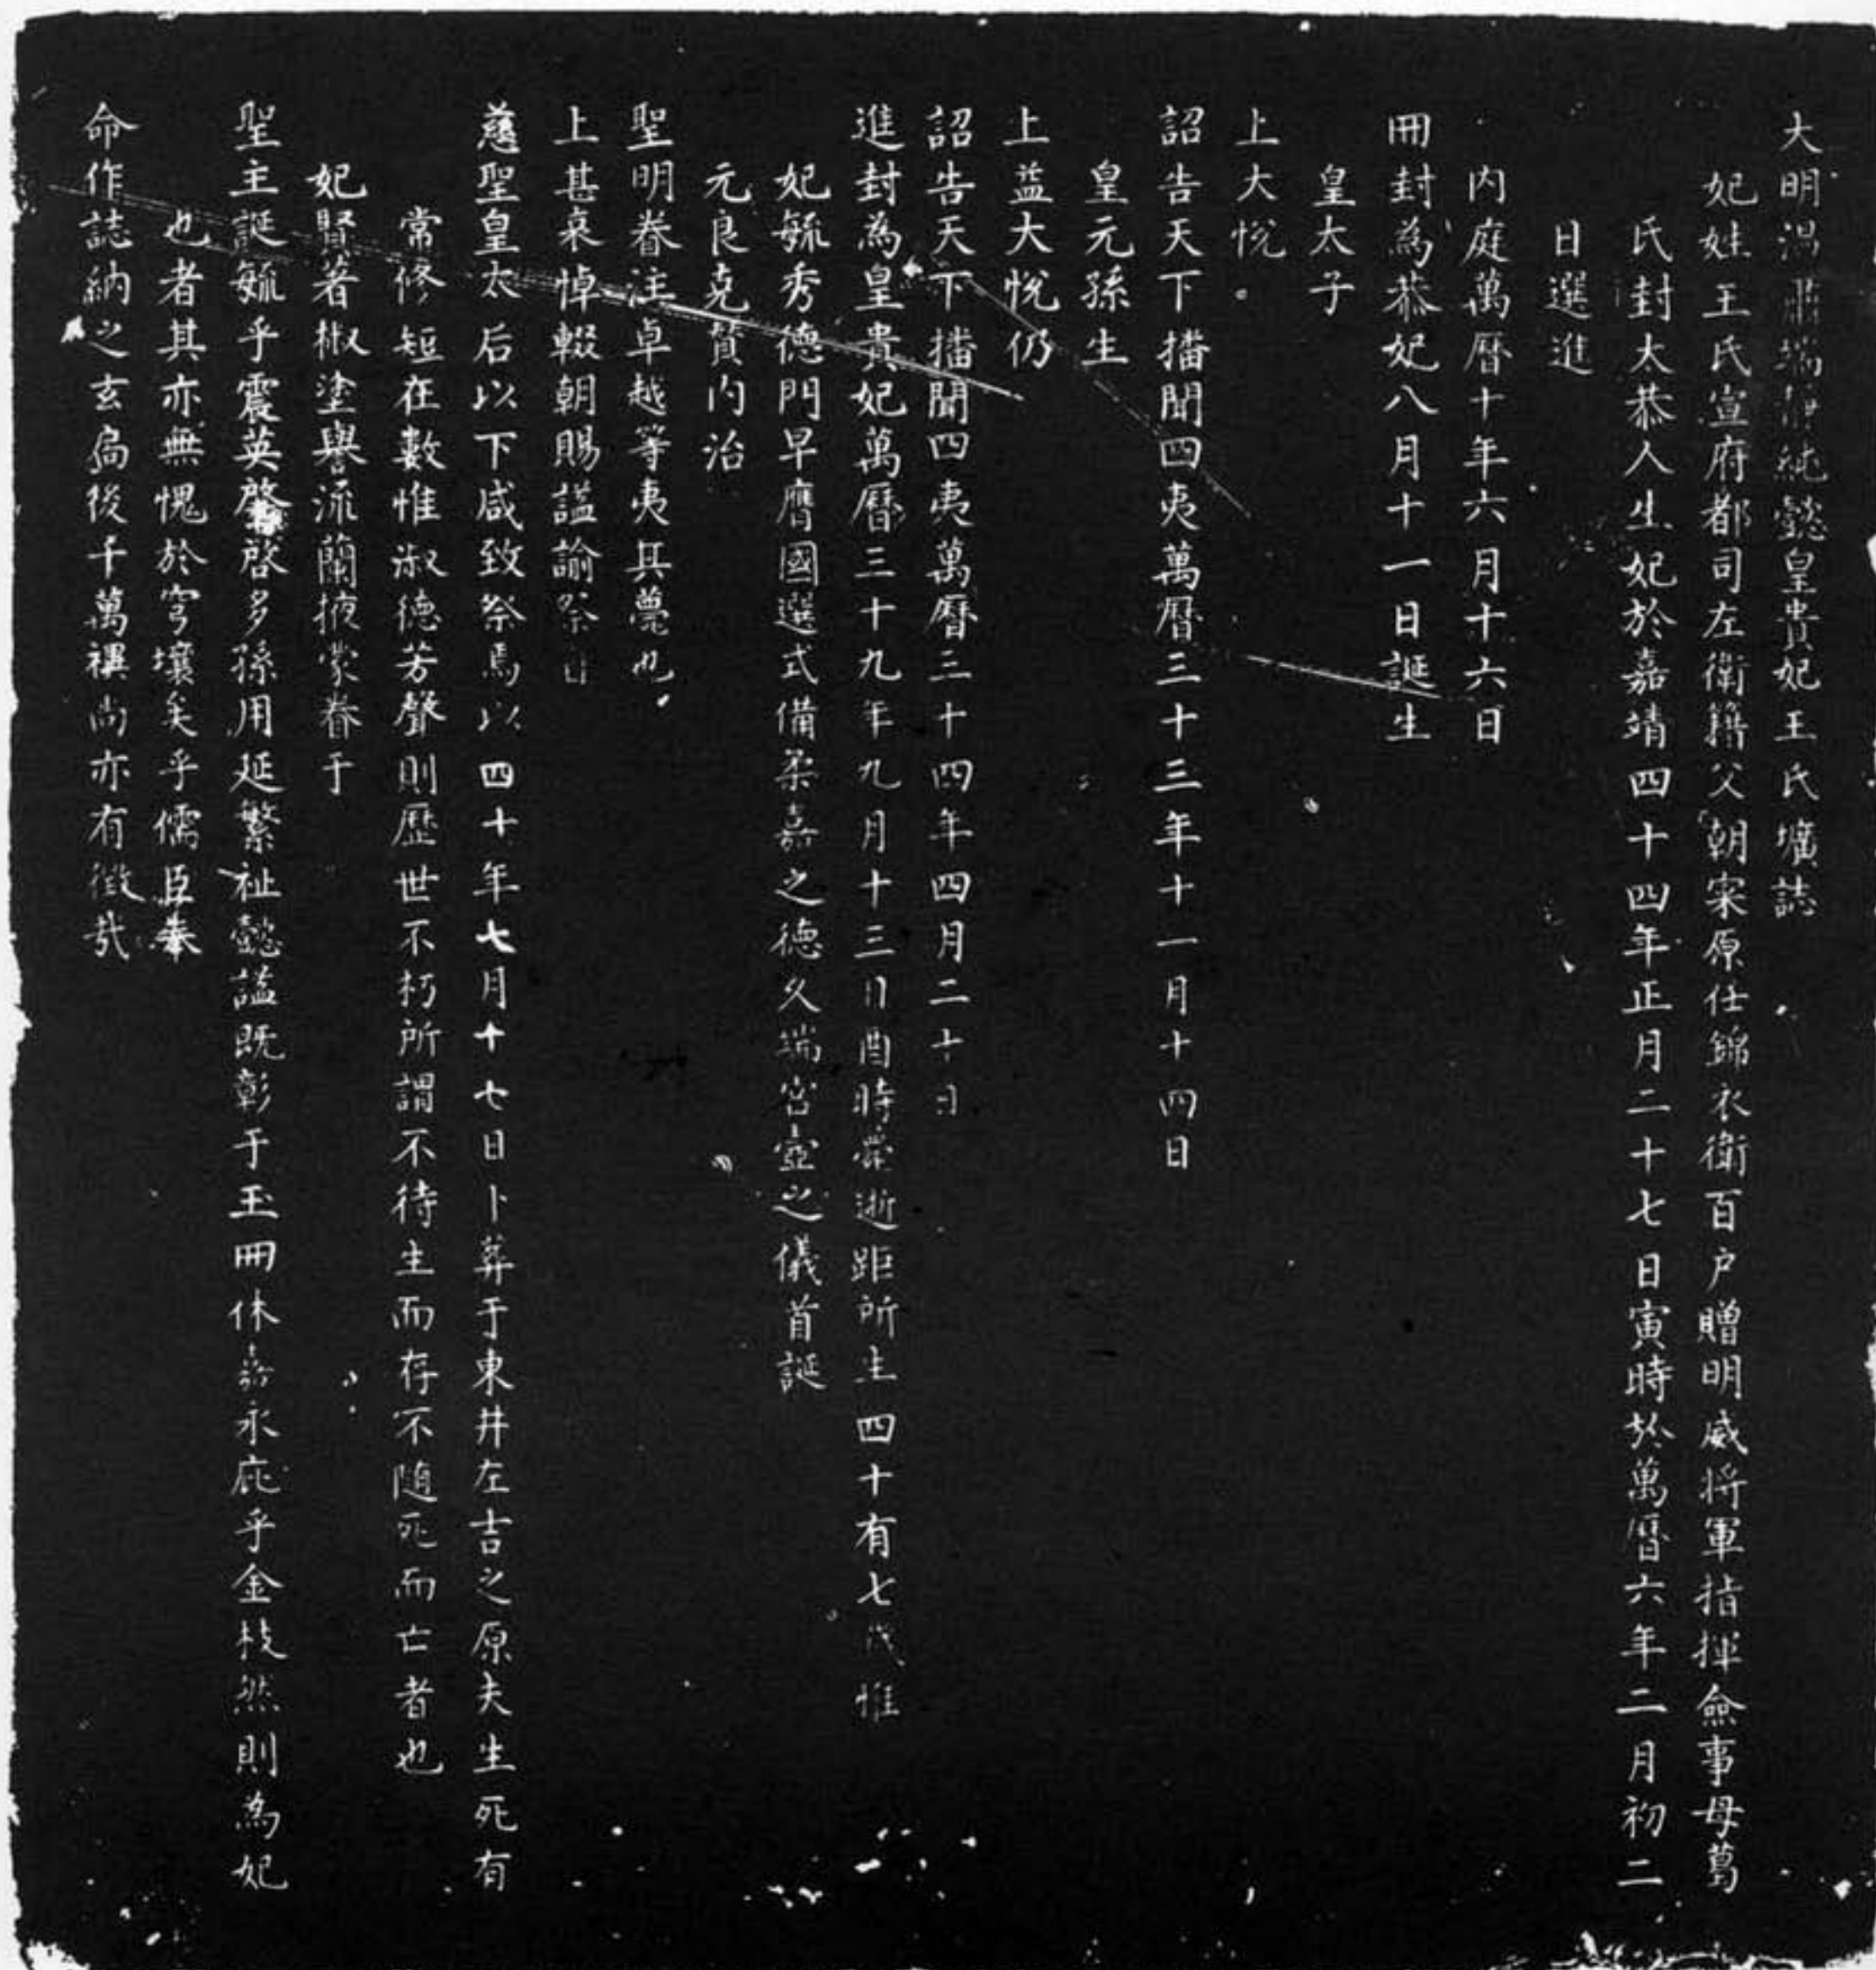 大明温肅端靜純懿皇貴妃王氏壙誌
妃姓王氏宣府都司左衛籍父朝寀原任錦衣衛百户贈明威将軍指揮僉事母葛
氏封太恭人生妃於嘉靖四十四年正月二十七日寅時於萬曆六年二月初二
日選進
内庭萬曆十年六月十六日
冊封為恭妃八月十一日誕生
皇太子
上大悅
詔告天下播聞四夷萬曆三十三年十一月十四日
皇元孫生
上益大悅仍
詔告天下播聞四夷萬曆三十四年四月二十日
進封為皇貴妃萬曆三十九年九月十三日酉時薨逝距所生四十有七歲惟
妃毓秀德門早膺國選式備柔嘉之德久端宫壼之儀首誕
元良克贊内治
聖明眷注卓越等夷其薨也
上甚哀悼輟朝賜諡諭祭自
慈聖皇太后以下咸致祭焉以四十年七月十七日卜葬于東井左吉之原夫生死有
常修短在數惟淑德芳聲則歷世不朽所謂不待生而存不随死而亡者也
妃賢著椒塗譽流蘭掖蒙眷于
聖主誕毓乎震英啓多孫用延繁祉懿諡既彰于玉冊休嘉永庇乎金枝然則為妃
也者其亦無愧於穹壤矣乎儒臣奉
命作誌納之玄扃後千萬禩尚亦有徵哉